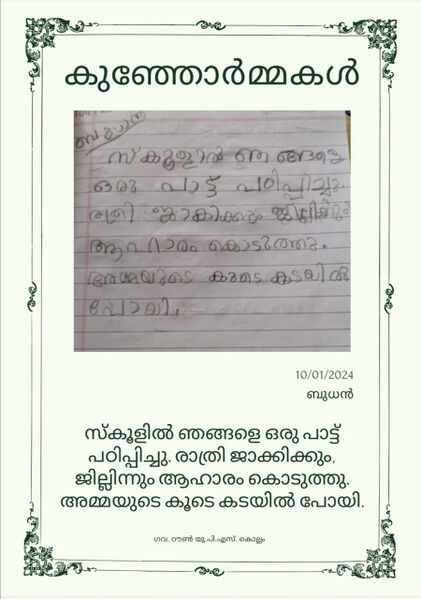 കുഞ്ഞോർമ്മകൾ
ബുധൻ
സ്കൂളിൽ ഞങ്ങളെ
ഒരു പാട്ട് പഠിപ്പിച്ചു.
രാത്രി ജാക്കിക്കും ജില്ലിന്നും
ആഹാരം കൊടുത്തു.
അമ്മയുടെ കൂടെ കടയിൽ
പോയി.
10/01/2024
ബുധൻ
സ്കൂളിൽ ഞങ്ങളെ ഒരു പാട്ട്
പഠിപ്പിച്ചു. രാത്രി ജാക്കിക്കും,
ജില്ലിന്നും ആഹാരം കൊടുത്തു.
അമ്മയുടെ കൂടെ കടയിൽ പോയി.
ഗവ. ടൗൺ യു.പി.എസ്. കൊല്ലം